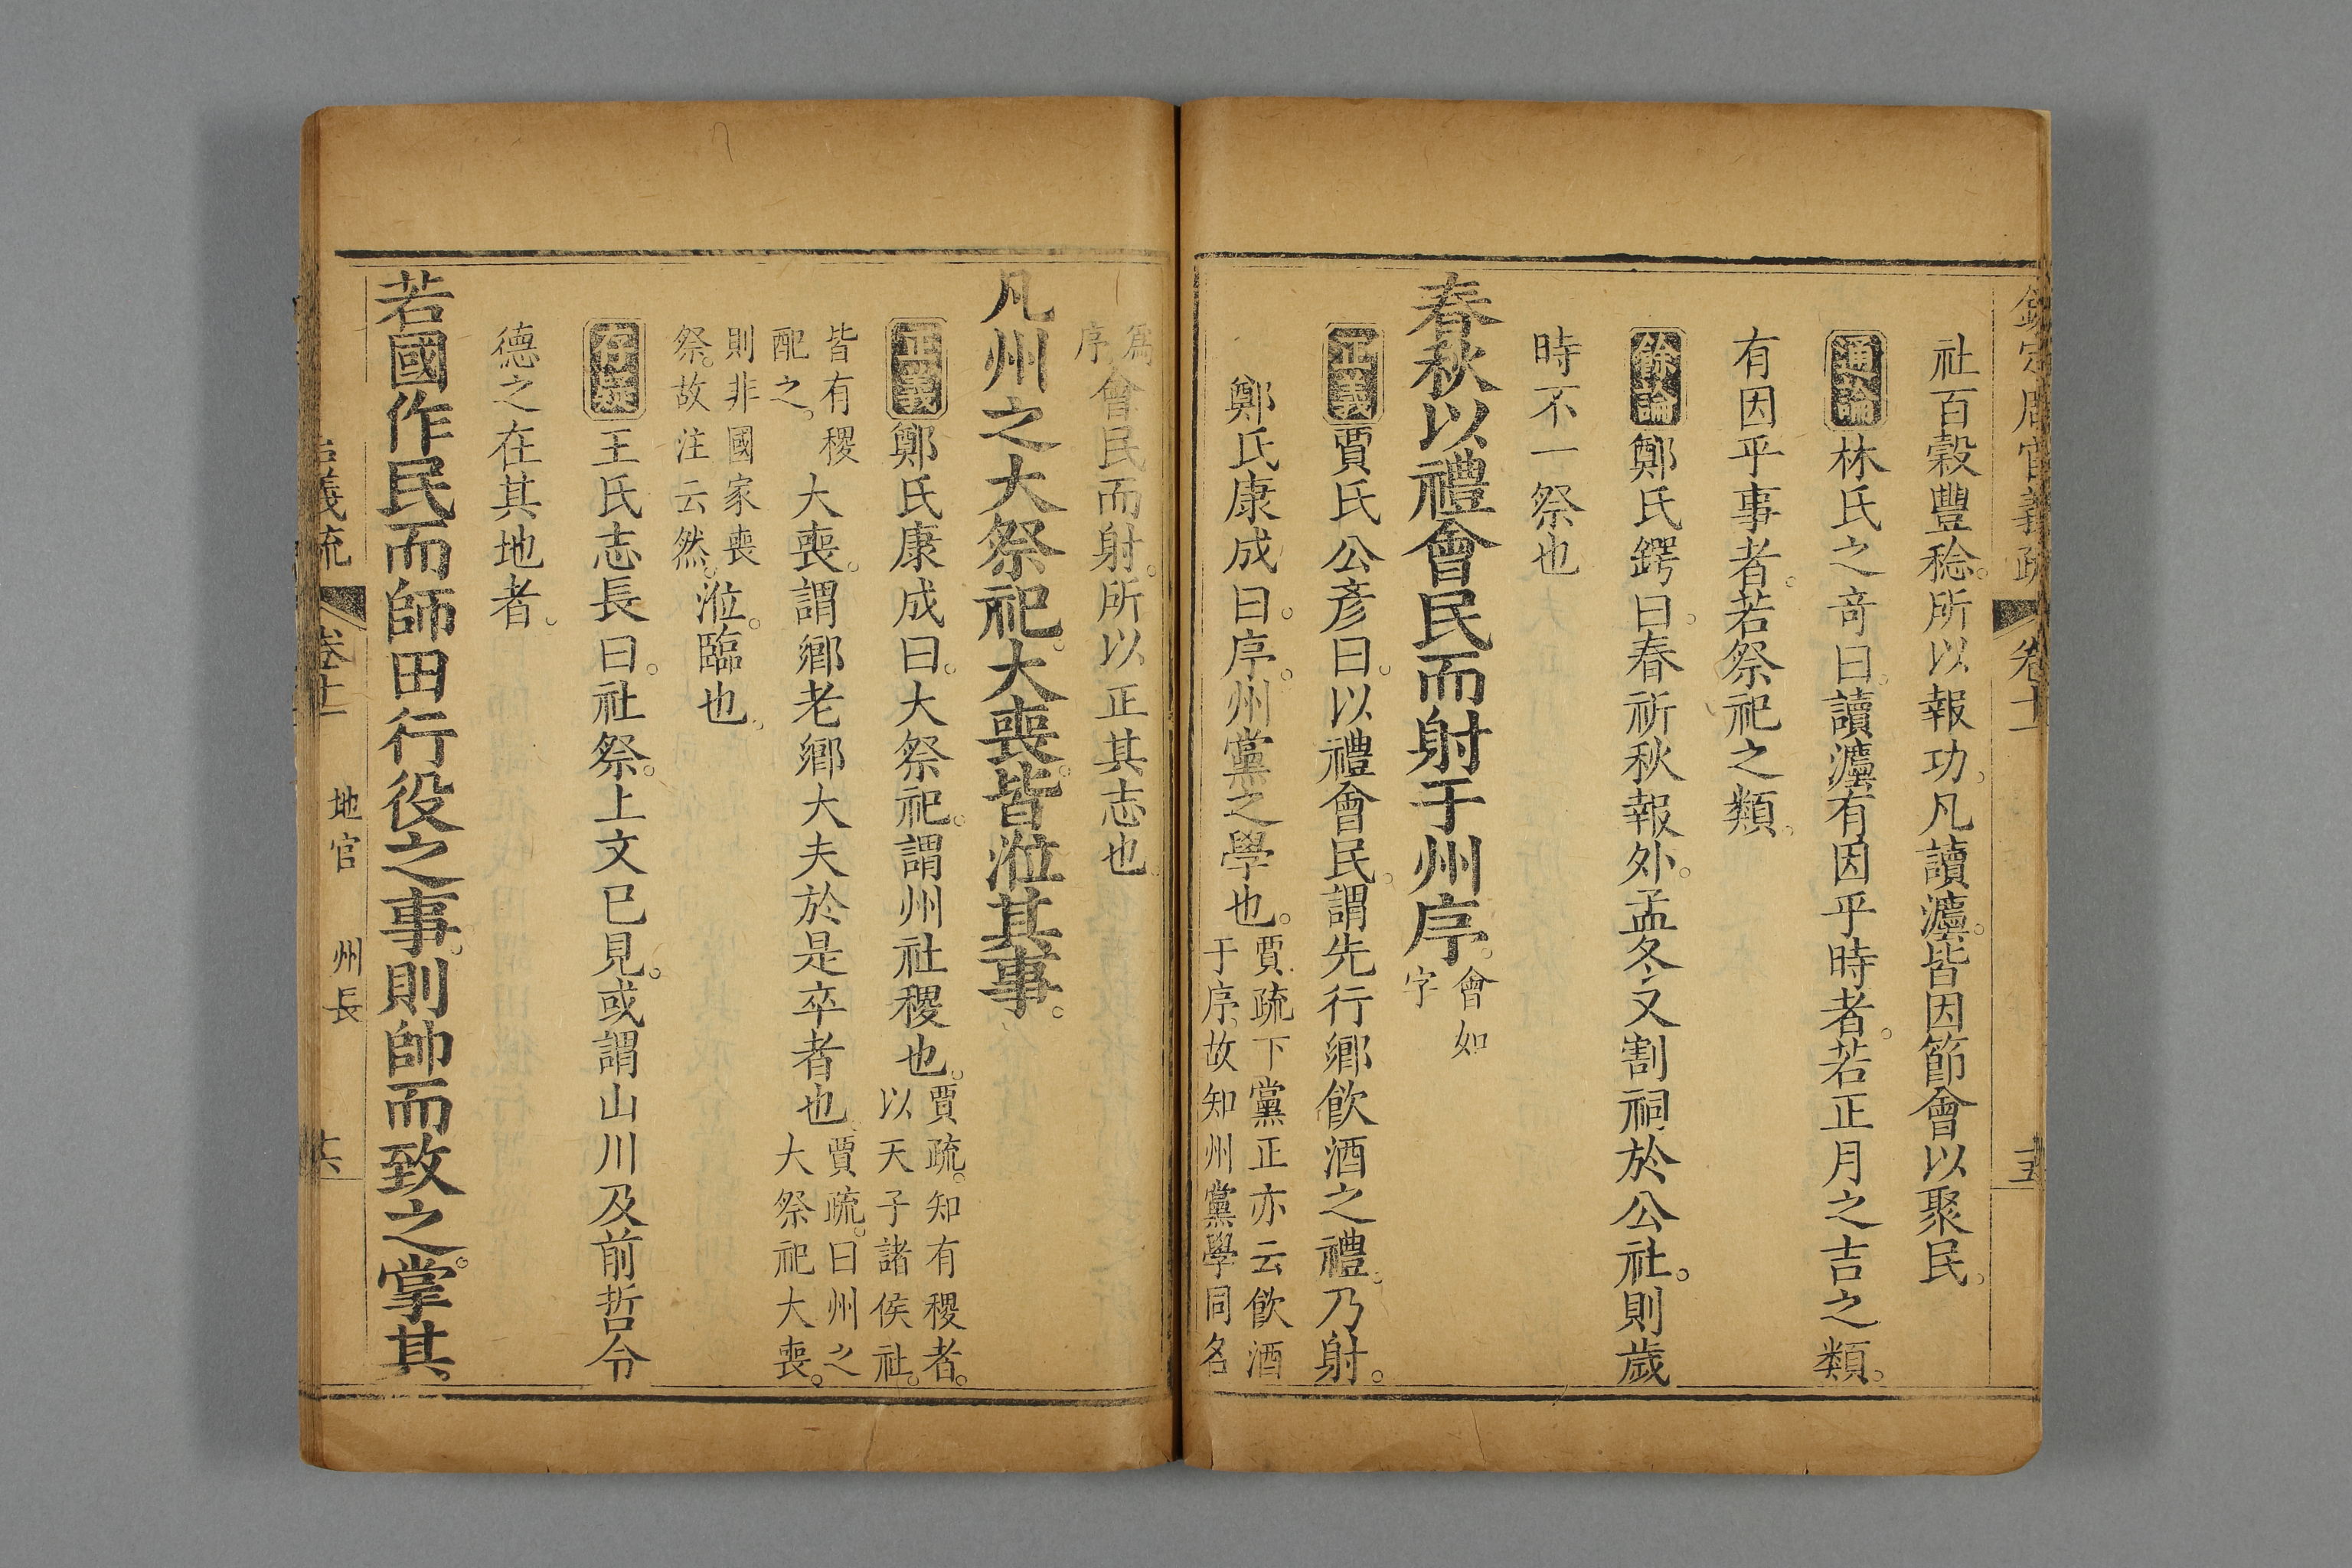 欽定周官義疏 卷十一 十五
社百穀豐稔。所以報功。凡讀灋。皆因節會以聚民。
通論 林氏之奇曰。讀灋有因乎時者。若正月之吉之類。
有因乎事者。若祭祀之類。
餘論 鄭氏鍔曰。春祈秋報外。孟冬又割祠於公社。則歲
時不一祭也
春秋以禮會民而射于州序。會如字
正義 賈氏公彥曰。以禮會民。謂先行鄉飲酒之禮。乃射。
鄭氏康成曰。序。州黨之學也。賈疏下黨正亦云飲酒于序。故知州黨學同名
爲序會民而射。所以正其志也。
凡州之大祭祀。大喪。皆涖其事。
正義 鄭氏康成曰。大祭祀。謂州社稷也。賈疏。知有稷者。以天子諸侯社。
皆有稷配之。大喪。謂鄉老鄉大夫於是卒者也。賈疏。曰州之大祭祀大喪。
則非國家喪祭。故注云然。涖。臨也。
存疑 王氏志長曰。社祭。上文已見。或謂山川及前哲令
德之在其地者。
若國作民而師田行役之事。則帥而致之。掌其
義疏 卷十一 地官 州長 十六